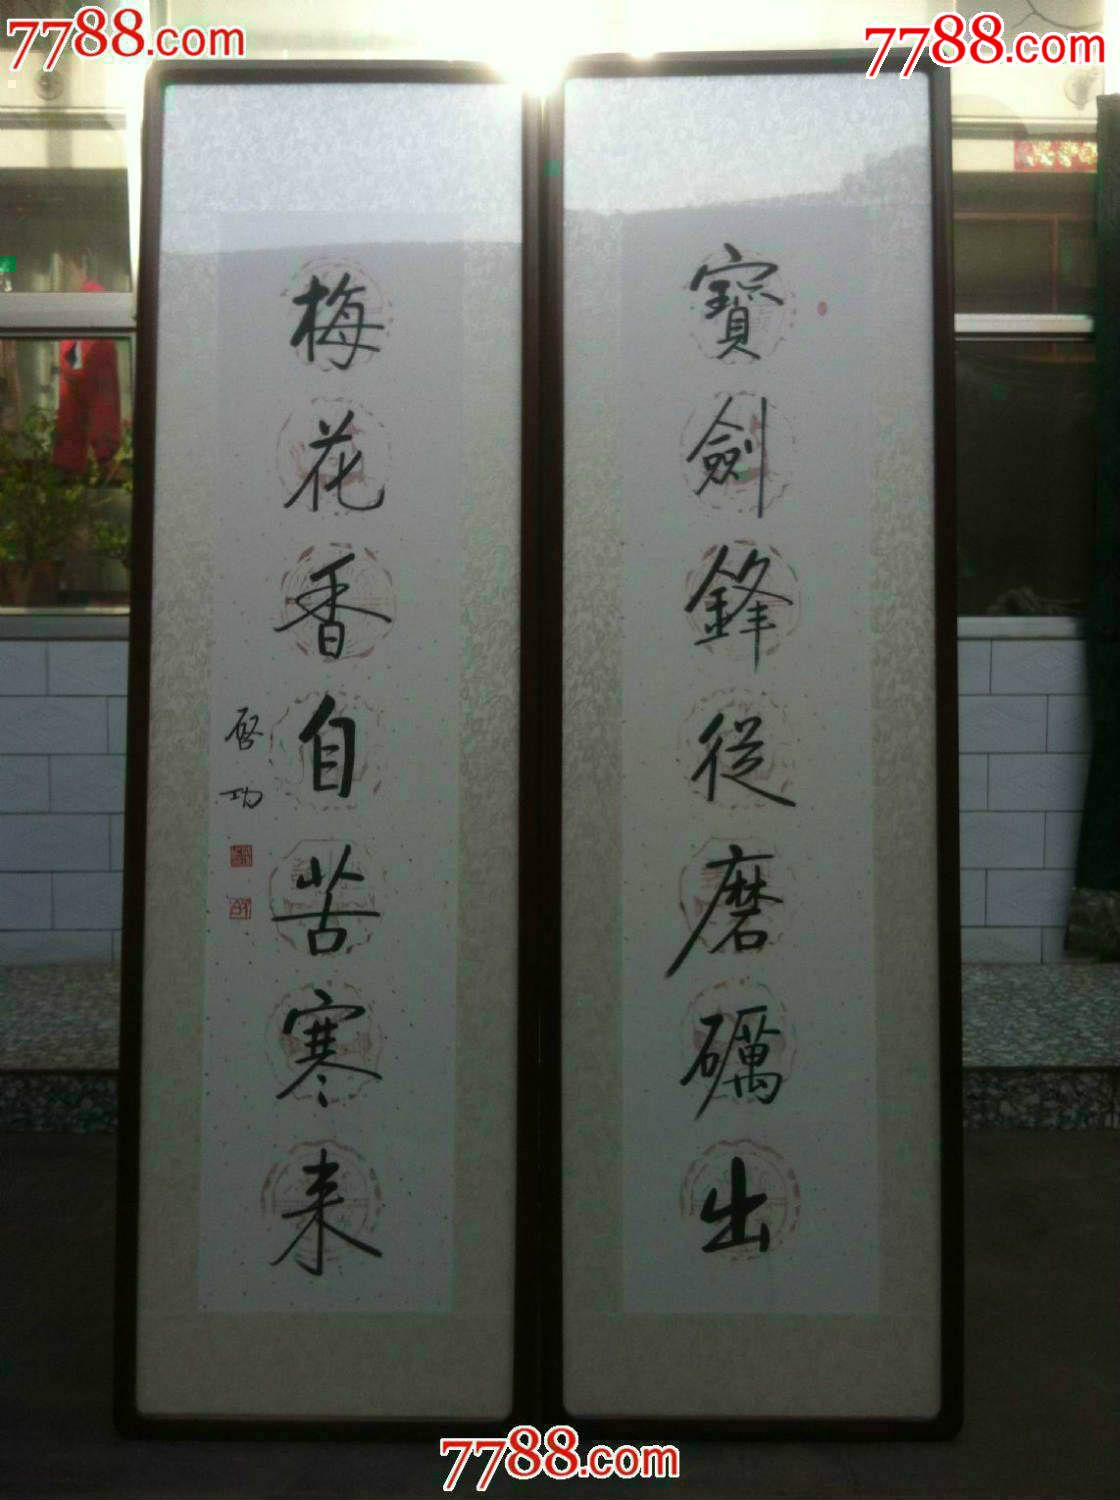 7788.com
7788.com
寶劍鋒從磨礪出
梅花香自苦寒来
啓功
7788.com